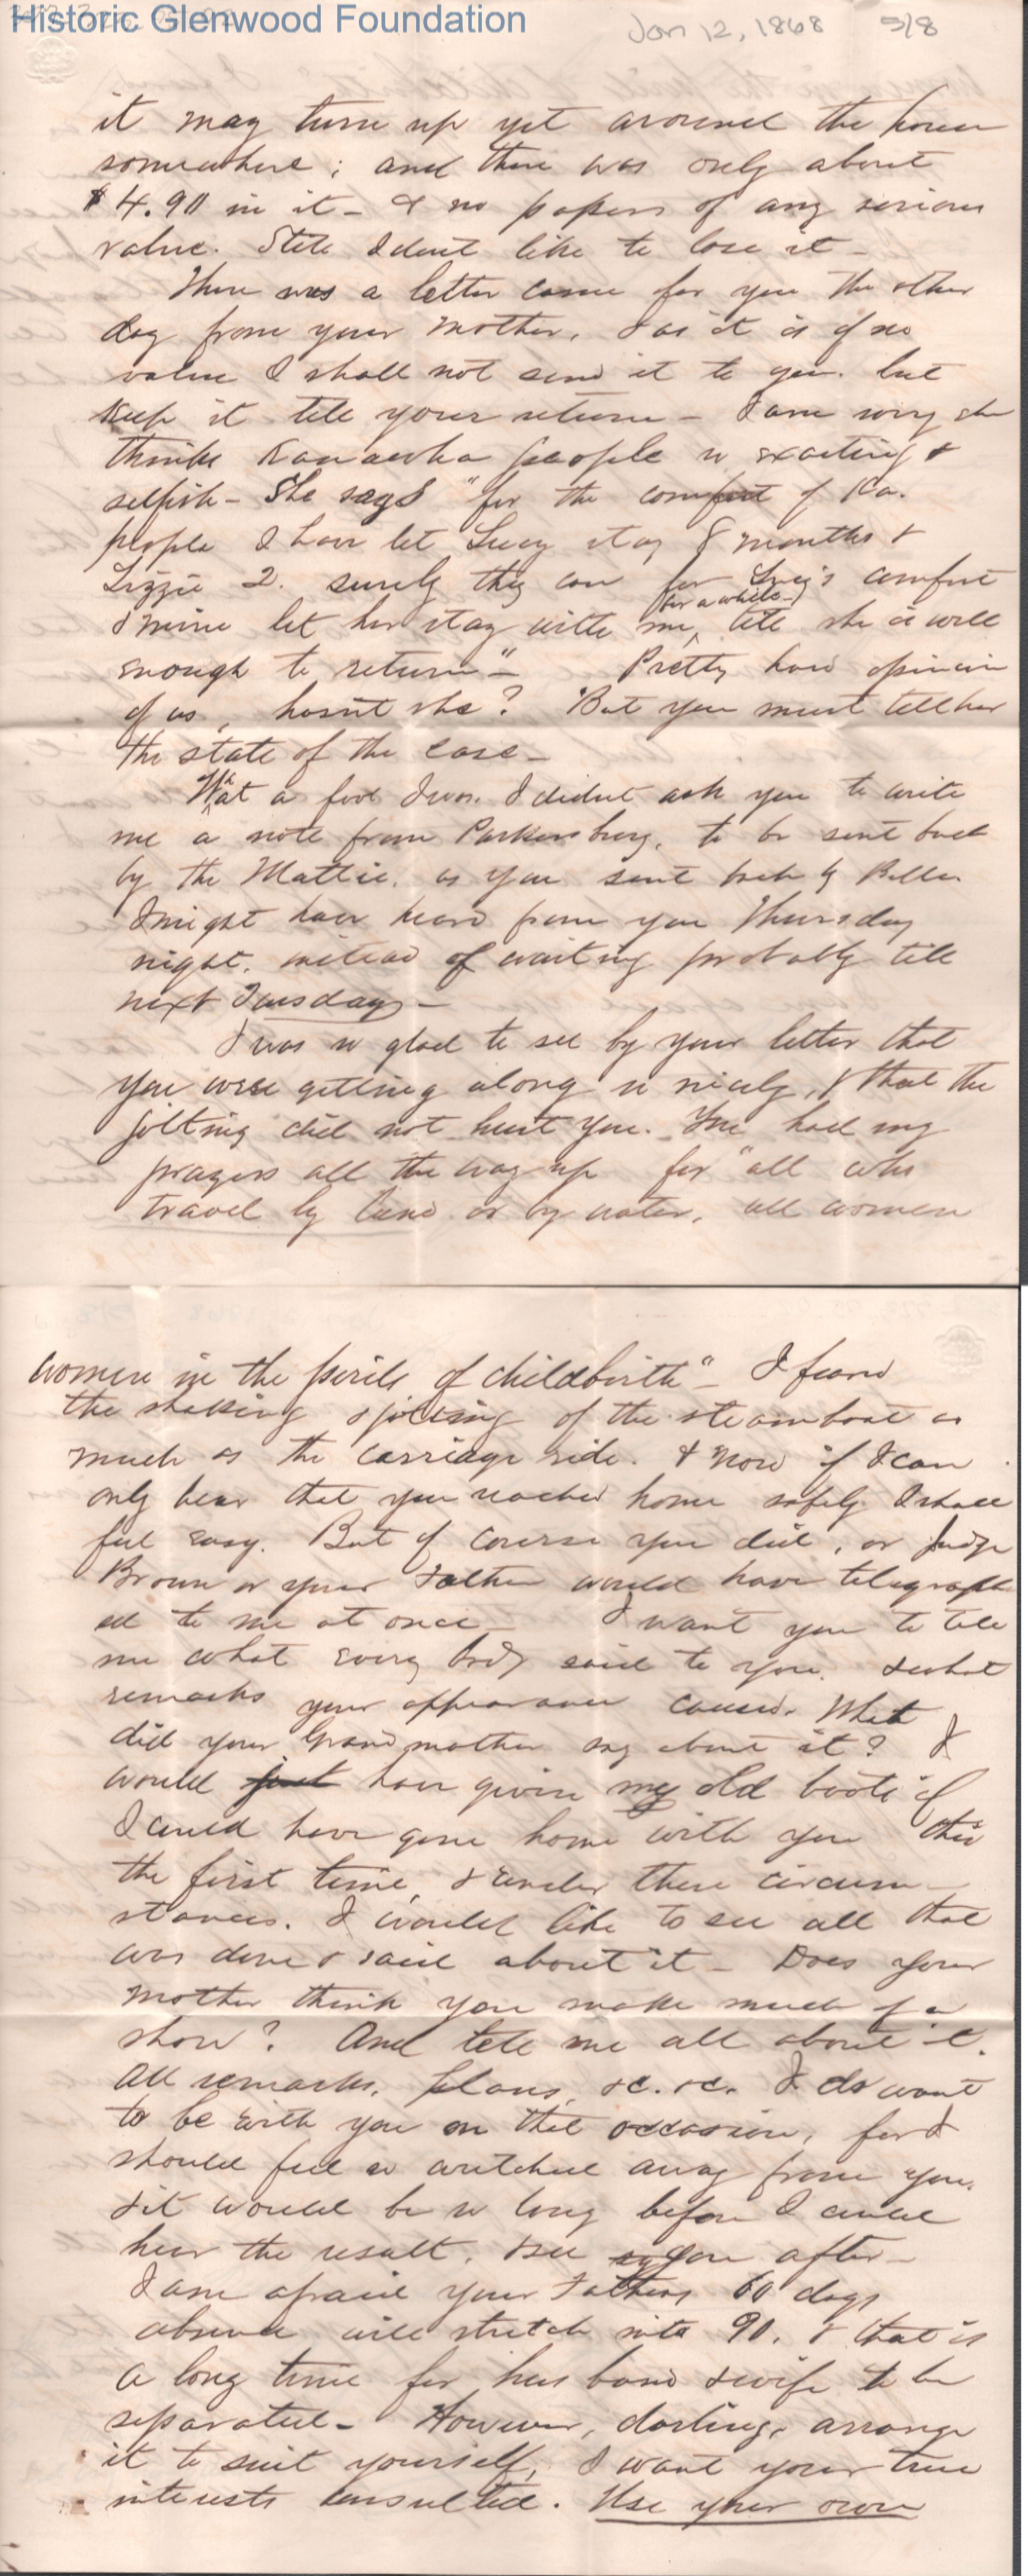 Historic Glenwood Foundation
Jan 12, 1868 5/8
it may turn up yet around the house
somewhere; and there was only about
$4.90 in it - & no papers of any serious
value. Still I dont like to lose it -
There was a letter came for you the other
day from your mother, & as it is of no
value I shall not send it to you. but
keep it till your return - I am sorry she
thinks Kanawha people so exacting &
selfish - She says "for the comfort of Ka.
people I have let Lucy stay 8 months &
Lizzie 2. surely they can for Lucy's comfort
for a while -
& mine let her stay with me, till she is well
enough to return" - Pretty hard opinion
of us, hasn't she? But you must tell her
the state of the case -
What a fool I was. I didnt ask you to write
me a note from Parkersburg, to be sent back
by the Mattie. as you sent back by
I might have heard from you Thursday
night. instead of waiting probably till
next Tuesday -
I was so glad to see by your letter that
you were getting along so nicely, & that the
jolting did not hurt you. You had my
prayers all the way up for "all who
travel by land or by water, all women
women in the perils of childbirth" - I feared
the shaking & jolting of the steamboat as
much as the carriage ride. & now if I can
only hear that you reached home safely I shall
feel easy. But of course you did, or Judge
Brown or your Father would have telegraph
ed to me at once - I want you to tell
me what every body said to you. & what
remarks your appearance caused. What
did your Grandmother say about it? I
would just have given my old boots if
I could have gone home with you this
the first time, & under these circum-
stances. I would like to see all that
was done & said about it - Does your
mother think you make much of a
show? And tell me all about it.
All remarks, plans, &c. &c. I do want
to be with you on that occasion, for I
should feel so wretched away from you,
& it would be so long before I could
hear the result, & see you after -
I am afraid your Fathers 60 days
absence will stretch into 90. & that is
a long time for husband & wife to be
separated - However, darling, arrange
it to suit yourself, I want your true
interests consulted. Use your own